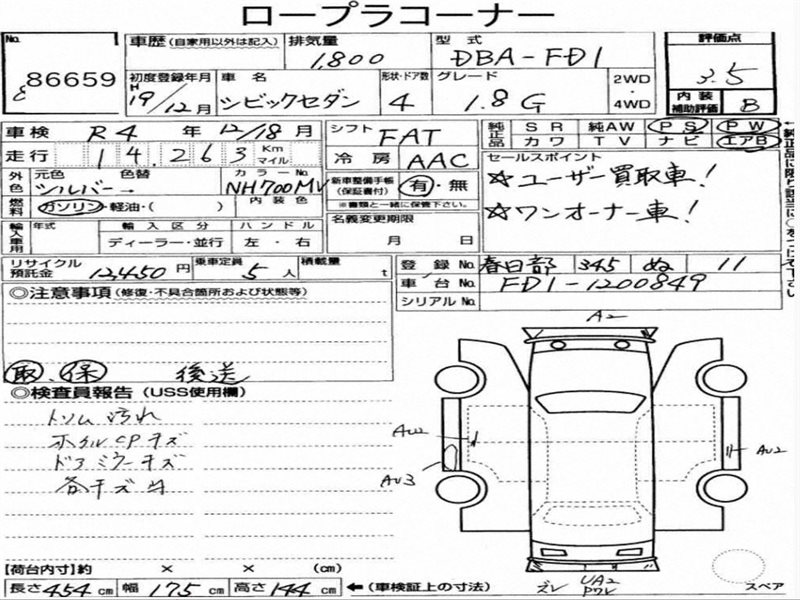 ロープラコーナー
No. 86659
車歴 (自家用以外は記入) 排気量 1,800 型式 DBA-FD1 評価点 3.5
初度登録年月 H 19/12月 車名 シビックセダン 形状・ドア数 4 グレード 1.8G 2WD・4WD 内装補助評価 B
車検 R4年 12/18月 シフト FAT 純正品 SR 純AW PS PW
走行 14.263 Km マイル 冷房 AAC カワ TV ナビ エアB
外色 元色 シルバー 色替 → カラーNo NH700M 新車整備手帳(保証書付) 有・無 ※書類と一緒に保管下さい。
セールスポイント
☆ユーザー買取車!
☆ワンオーナー車!
燃料 ガソリン・軽油・( ) 内装色
輸入車用 年式 輸入区分 ディーラー・並行 ハンドル 左・右 名義変更期限 月 日
リサイクル預託金 12,450円 乗車定員 5人 積載量 t 登録No. 春日部 345 ぬ 11
車台No. FD1-1200849
シリアルNo.
◎注意事項 (修復・不具合箇所および状態等)
取 保 後送
◎検査員報告 (USS使用欄)
トリム汚れ
ホイルCPキズ
ドアミラーキズ
各キズ
A2
AU2
AU3
AU2
ズレ UA2
スペア
【荷台内寸】約 × × (cm)
長さ 454 cm 幅 175 cm 高さ 144 cm ←(車検証上の寸法)